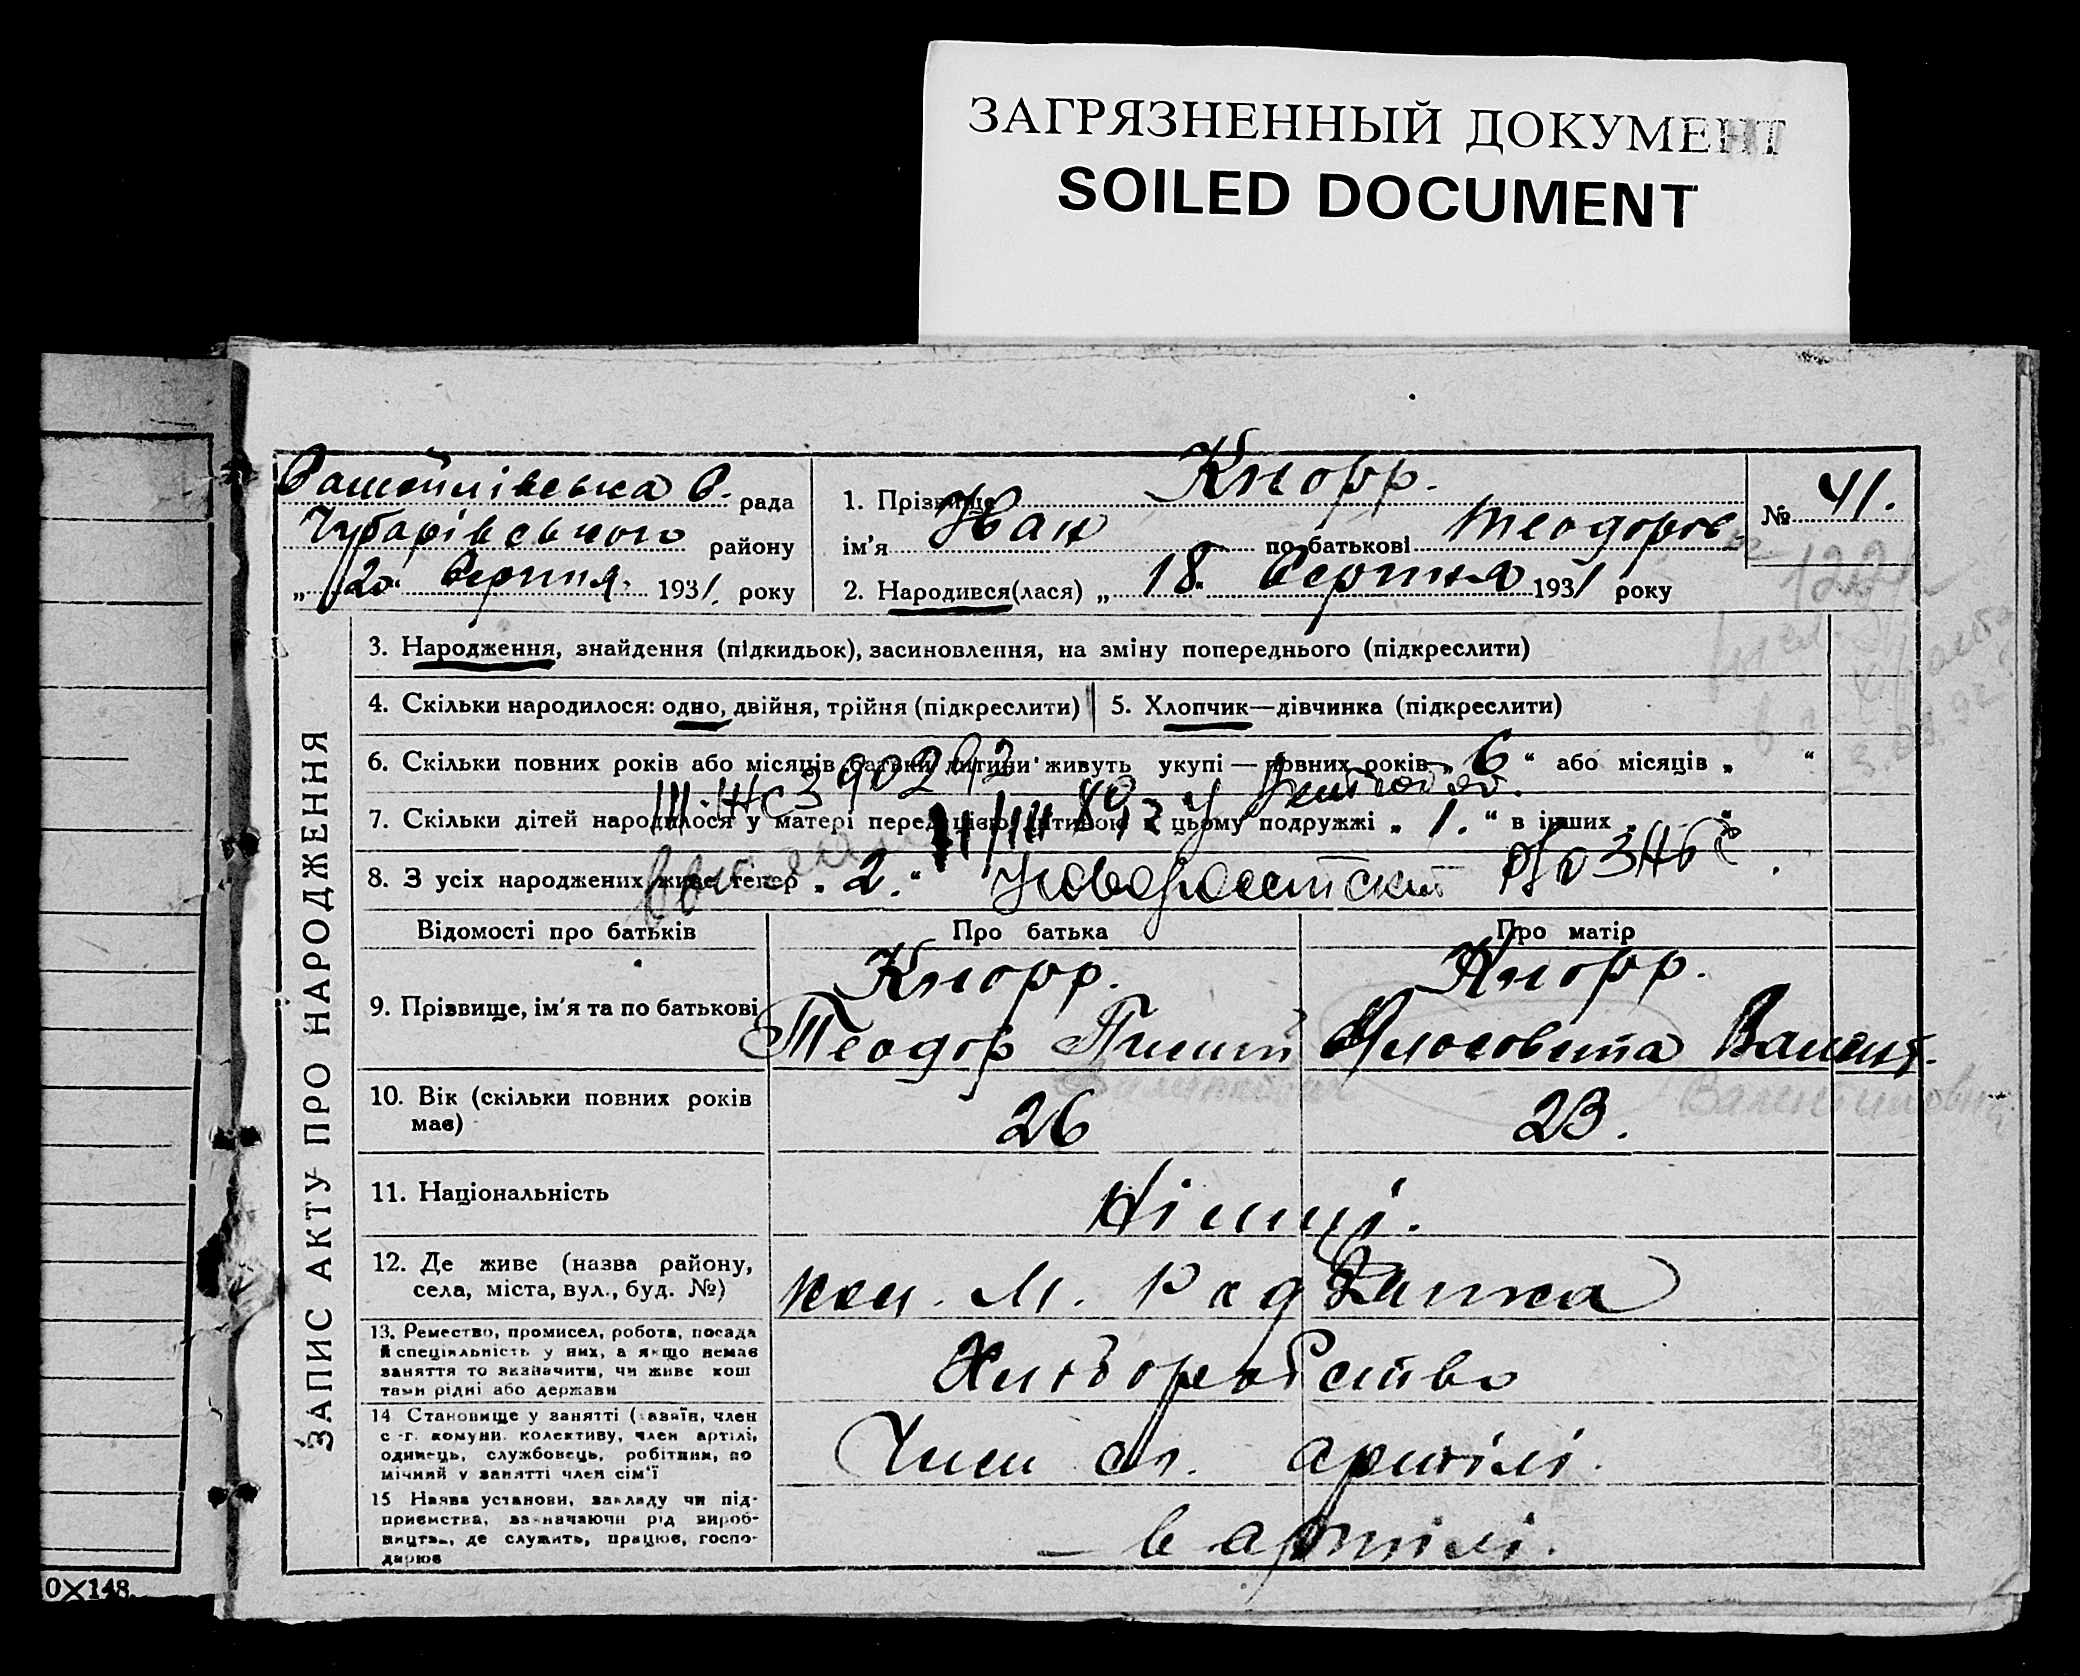 ЗАГРЯЗНЕННЫЙ ДОКУМЕНТ
SOILED DOCUMENT
рада
Чубарівського району
„ 20 “ Серпня 1931. року
1. Прізвище Кнорр.
ім'я Іван по батькові Теодоров
2. Народився(лася) „ 18 “ Серпня 1931 року
№ 41.
ЗАПИС АКТУ ПРО НАРОДЖЕННЯ
3. Народження, знайдення (підкидьок), засиновлення, на зміну попереднього (підкреслити)
4. Скільки народилося: одно, двійня, трійня (підкреслити)
5. Хлопчик—дівчинка (підкреслити)
6. Скільки повних років або місяців батьки дитини живуть укупі — повних років „ 6 “ або місяців „ “
7. Скільки дітей народилося у матері перед цією дитиною в цьому подружжі „ 1. “ в інших „ “
8. З усіх народжених живе тепер „ 2. “
Відомості про батьків
Про батька
Про матір
9. Прізвище, ім'я та по батькові
Кнорр.
Теодор
Кнорр.
Валент.
Валентиновна
10. Вік (скільки повних років має)
26
23.
11. Національність
Німці.
12. Де живе (назва району,
села, міста, вул., буд. №)
13. Ремество, промисел, робота, посада
й спеціяльність у них, а якщо немає
заняття то зазначити, чи живе кош
тами рідні або держави
Хліборобство
14 Становище у занятті (хазяїн, член
с.-г. комуни. колективу, член артілі,
одинець, службовець, робітник, по
мічний у занятті член сім'ї
Член сг. артілі.
15 Назва установи, закладу чи під-
приємства, зазначаючи рід вироб-
ництва, де служить, працює, госпо-
дарює
— в артілі.
0×148